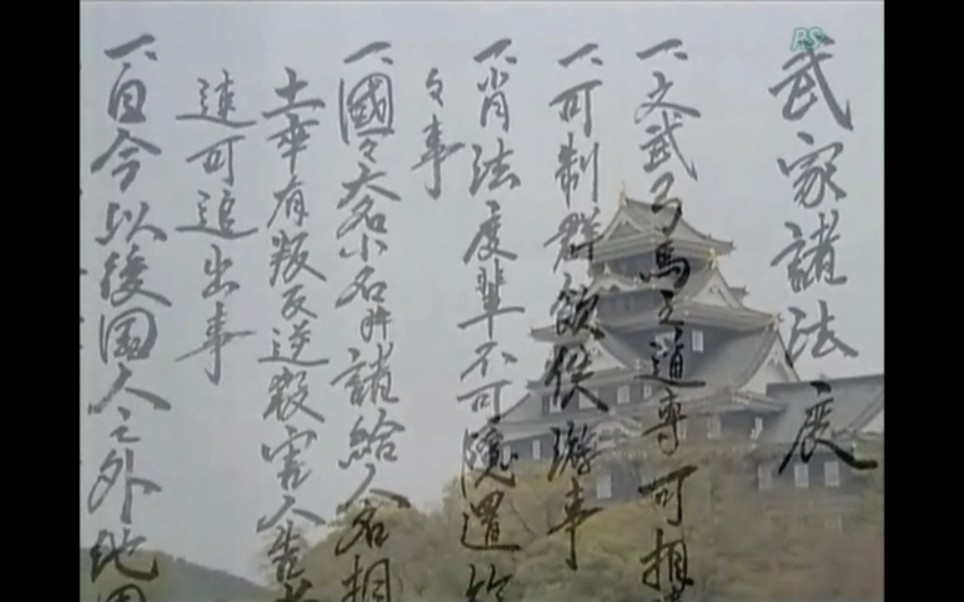 武家諸法度
一、文武弓馬之道専可相
一、可制群飲佚游事
一、背法度輩不可隠置
々事
一、國々大名小名并諸給人各相
士卒有叛反逆殺害人告
速可追出事
一、自今以後国人之外他国